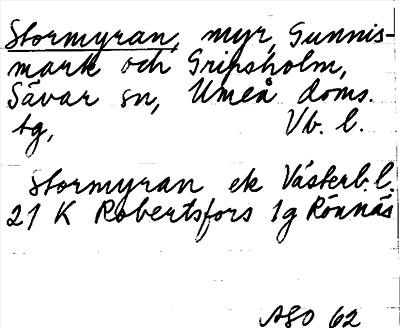 Stormyran, myr, Gunnis-
mark och Gripsholm,
Sävar sn, Umeå doms.
tg, Vb. l.
Stormyran ek Västerb. l.
21 K Robertsfors 1g Rönnäs
ASO 62